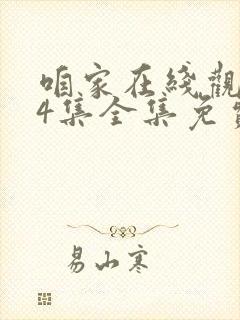 咱家在线觀
4集全集免費
易山寒